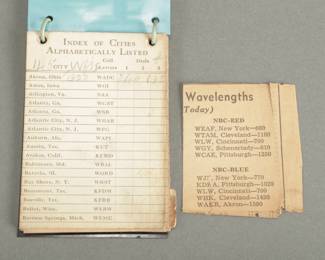 INDEX OF CITIES
ALPHABETICALLY LISTED
CITY Call Dials
Letters 1 2 3
Akron, Ohio WADC
Ames, Iowa WOI
Arlington, Va. NAA
Atlanta, Ga. WGST
Atlanta, Ga. WSB
Atlantic City, N. J. WHAR
Atlantic City, N. J. WPG
Auburn, Ala. WAPI
Austin, Tex. KUT
Avalon, Calif. KFWO
Baltimore, Md. WBAL
Batavia, Ill.
Bay Shore, N. Y. WRST
Beaumont, Tex. KFDM
Beloit, Wisc. WEBW
Berrien Springs, Mich. WEMC
Wavelengths
Today)
NBC-RED
WEAF, New York—660
WTAM, Cleveland—1100
WLW, Cincinnati—700
WGY, Schenectady—810
WCAE, Pittsburgh—1250
NBC-BLUE
WJZ, New York—770
KDKA, Pittsburgh—1020
WLW, Cincinnati—700
WHK, Cleveland—1420
WAKR, Akron—1590